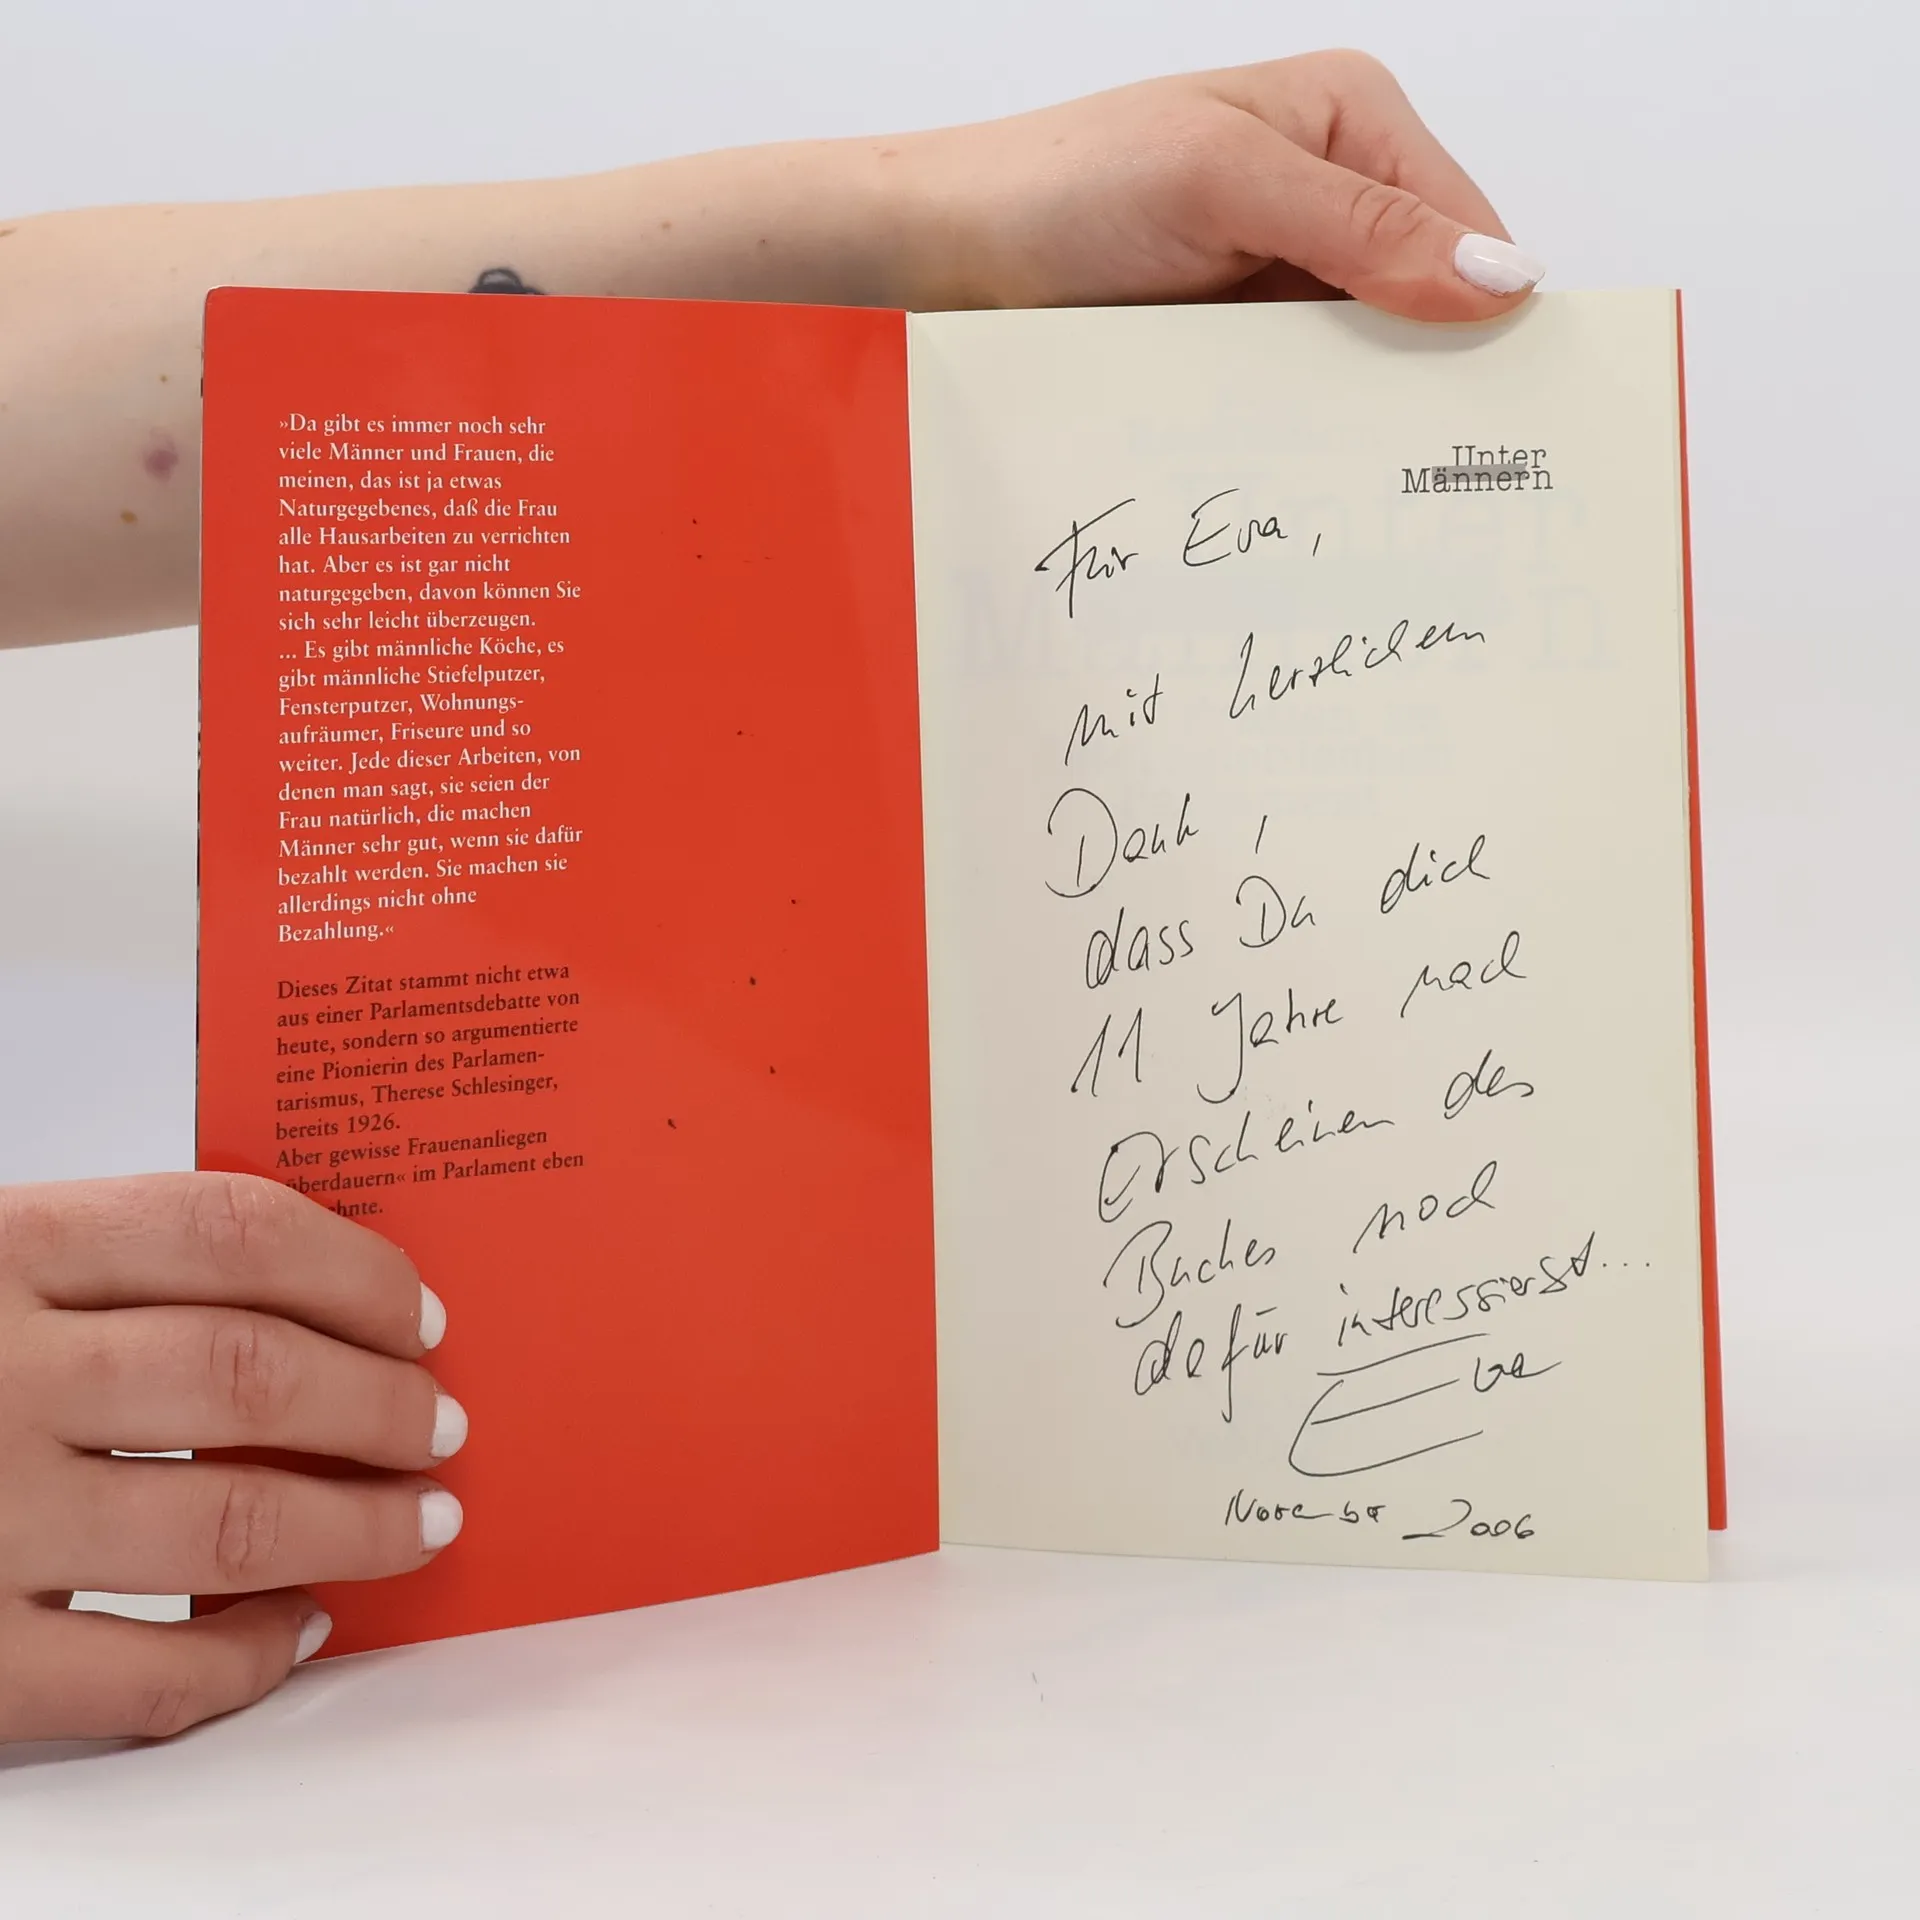 »Da gibt es immer noch sehr
viele Männer und Frauen, die
meinen, das ist ja etwas
Naturgegebenes, daß die Frau
alle Hausarbeiten zu verrichten
hat. Aber es ist gar nicht
naturgegeben, davon können Sie
sich sehr leicht überzeugen.
... Es gibt männliche Köche, es
gibt männliche Stiefelputzer,
Fensterputzer, Wohnungs-
aufräumer, Friseure und so
weiter. Jede dieser Arbeiten, von
denen man sagt, sie seien der
Frau natürlich, die machen
Männer sehr gut, wenn sie dafür
bezahlt werden. Sie machen sie
allerdings nicht ohne
Bezahlung.«
Dieses Zitat stammt nicht etwa
aus einer Parlamentsdebatte von
heute, sondern so argumentierte
eine Pionierin des Parlamen-
tarismus, Therese Schlesinger,
bereits 1926.
Aber gewisse Frauenanliegen
überdauern« im Parlament eben
hnte.
Unter
Männern
Für Eva,
mit herzlichem
Dank,
dass Du dich
11 Jahre nach
Erscheinen des
Buches noch
dafür interessierst...
Eva
November 2006